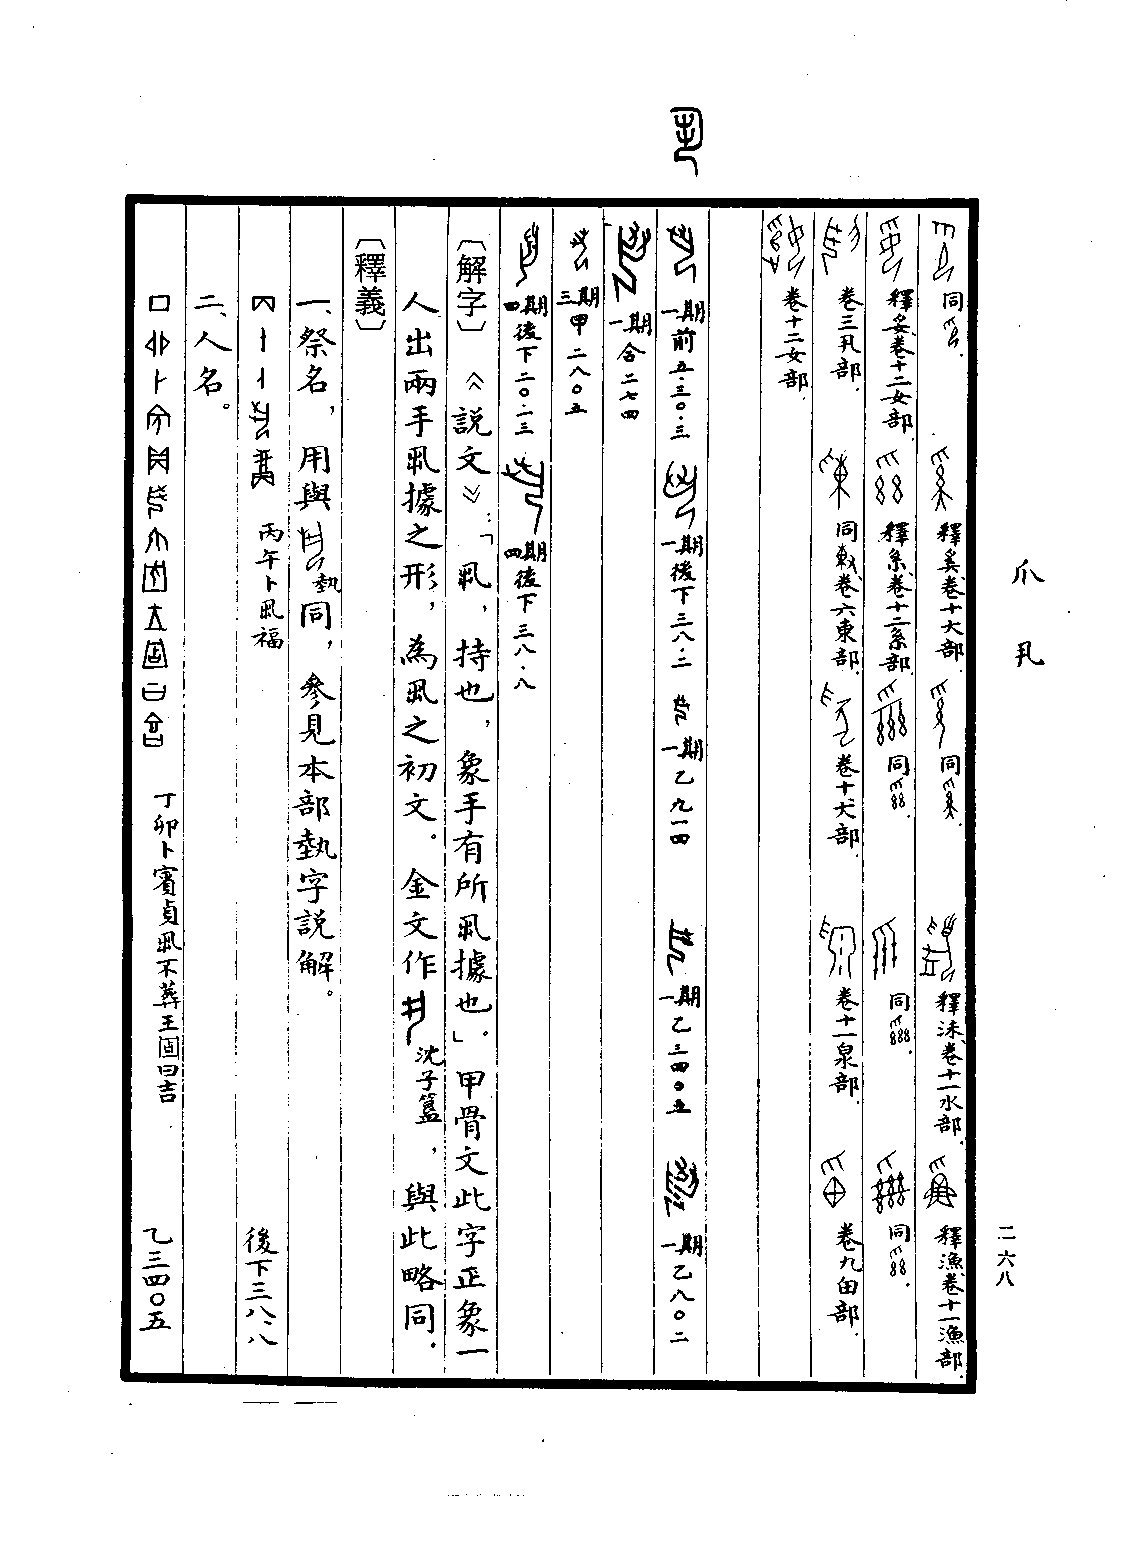 爪 丮
二六八
同
釋奚卷十大部
同
釋沬卷十一水部
釋漁卷十一漁部
釋妥卷十二女部
釋糸卷十三糸部
同
同
同
卷三丮部
同 卷六東部
卷十犬部
卷十一泉部
卷九甶部
卷十二女部
丮
一期前五·三〇·三
一期後下三八·二
一期乙九一四
一期乙三四〇五
一期乙八〇二
一期合二七四
三期甲二八〇五
四期後下二〇·一三
四期後下三八·八
〔解字〕《說文》：「丮，持也，象手有所丮據也」。甲骨文此字正象一
人出兩手丮據之形，為丮之初文。金文作 沈子簋，與此略同．
〔釋義〕
一、祭名，用與 埶同，參見本部埶字說解。
丙午卜丮福 後下三八、八
二、人名。
丁卯卜賓貞丮不葬王固曰吉 乙三四〇五